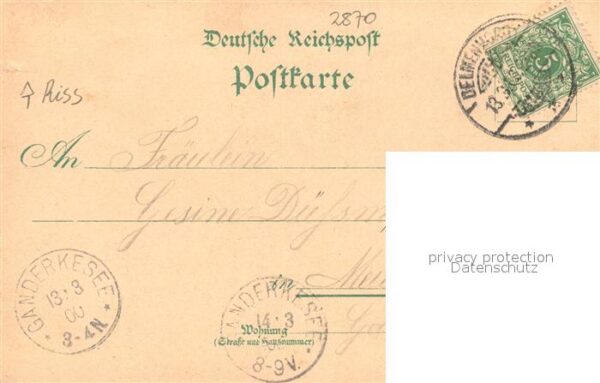 2870
Deutsche Reichspost
Postkarte
DELMENHORST
13.3.
5
↑ Riss
An Fräulein
Gesine
privacy protection
Datenschutz
in
GANDERKESEE
13.3
00
3-4N
GANDERKESEE
14.3
8-9V.
Wohnung
(Straße und Hausnummer)